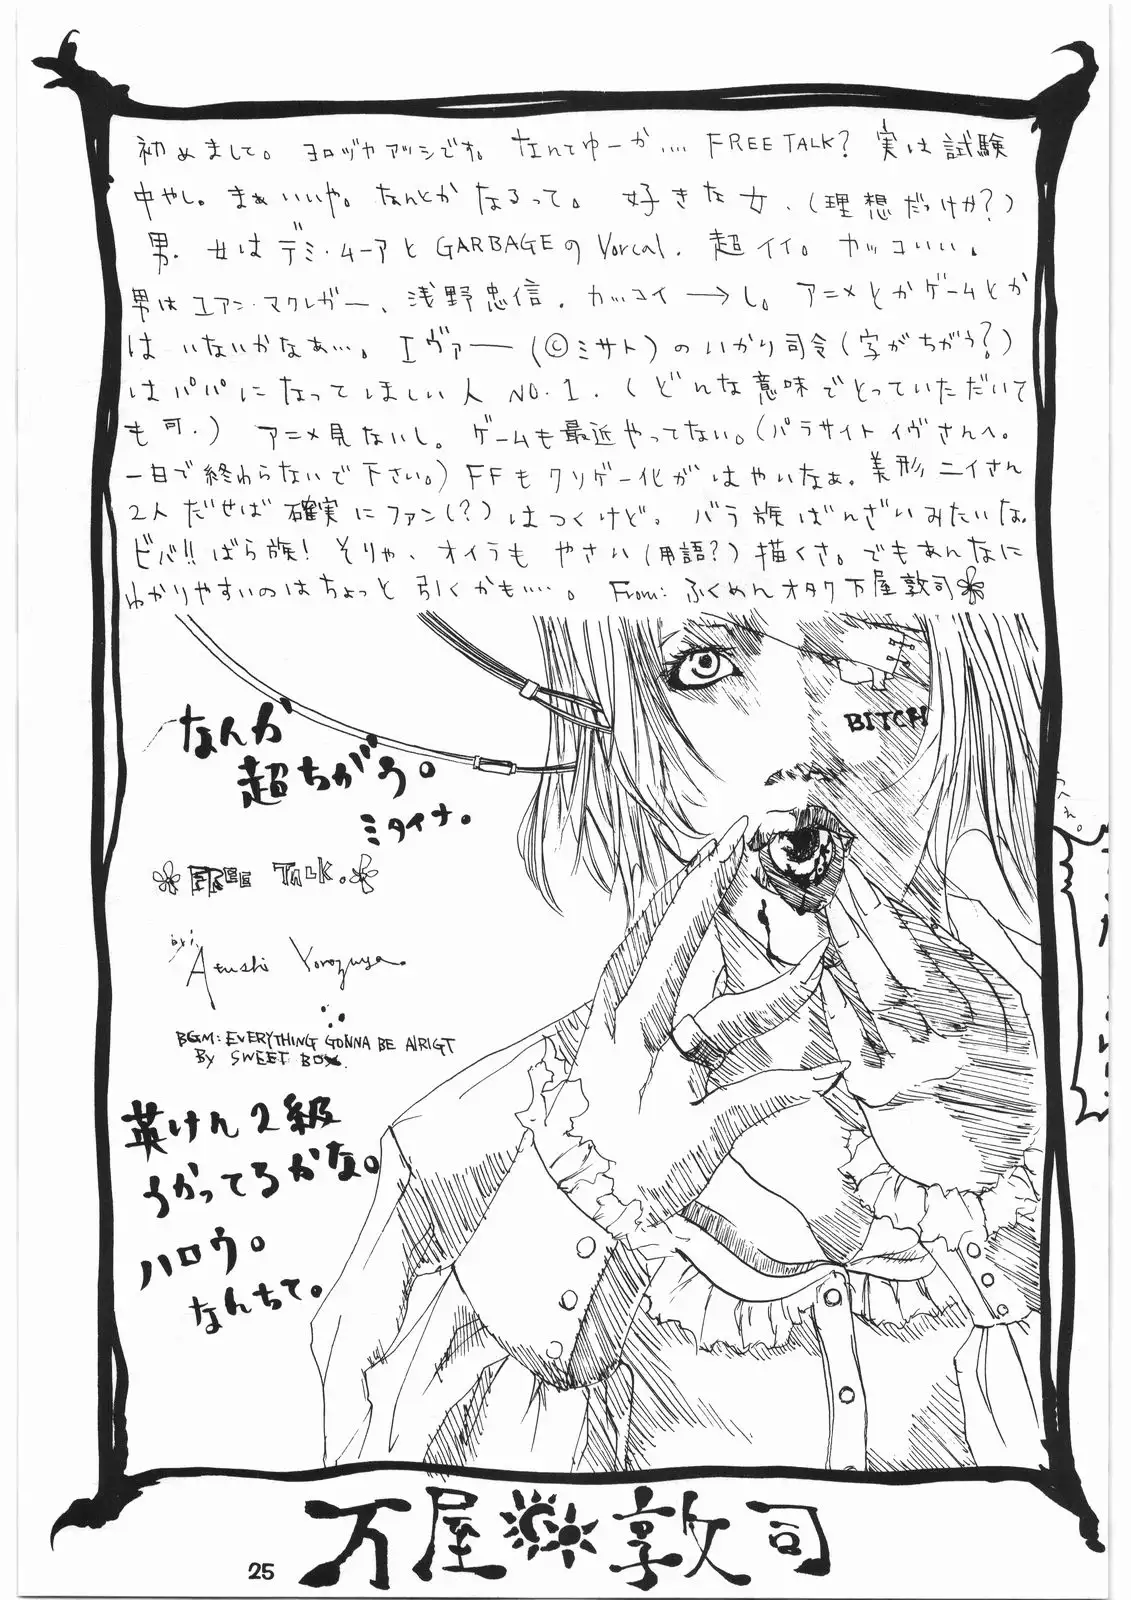 初めまして。ヨロヅヤアツシです。なんてゆーか.... FREE TALK? 実は試験
中やし。まぁいいや。なんとかなるって。好きな女、(理想だっけか?)
男. 女はデミ・ムーアとGARBAGEのVorcal. 超イイ。カッコいい。
男はユアン・マクレガー、浅野忠信. カッコイ→し。アニメとかゲームとか
はいないかなぁ…。エヴァー(©ミサト)のいかり司令(字がちがう?)
はパパになってほしい人 NO.1. (どんな意味でとっていただいて
も可.) アニメ見ないし。ゲームも最近やってない。(パラサイトイヴさんへ。
一日で終わらないで下さい。) FFもクソゲー化がはやいなぁ。美形ニイさん
2人だせば確実にファン(?)はつくけど。バラ族ばんざいみたいな。
ビバ!!ばら族! そりゃ、オイラもやさい(用語?)描くさ。でもあんなに
わかりやすいのはちょっと引くかも…..。 From: ふくめんオタク万屋敦司
BITCH
なんか
超ちがう。
ミタイナ。
FREE TALK.
by
Atushi Yorozuya.
BGM: EVERYTHING GONNA BE AIRIGT
By SWEET BOX.
英けん2級
うかってるかな。
ハロウ。
なんちて。
万屋敦司
25